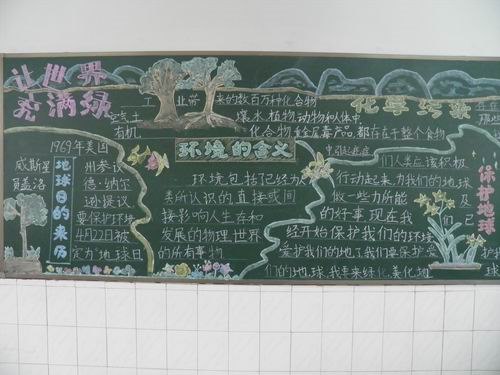 让世界
充满绿
工业带来的数百万种化合物
空气土壤水植物动物和人体中
有机化合物 含毒产品都存在于整个食物
中引起症
化学污染
1969年美国
威斯
州参议
员盖洛
德·纳尔
逊提议
要保护环境
4月22日被
定为地球日
地球日的来历
环境的含义
环境包括已经为
类所认识的直接或间
接影响人生存和
发展的物理世界
的所有事物
们人类应该积极
行动起来,为我们的地球
做一些力所能及
的好事,现在我们已
经开始保护我们的环境
爱护我们的地
们的地球,我来绿化,美化地
保护地球